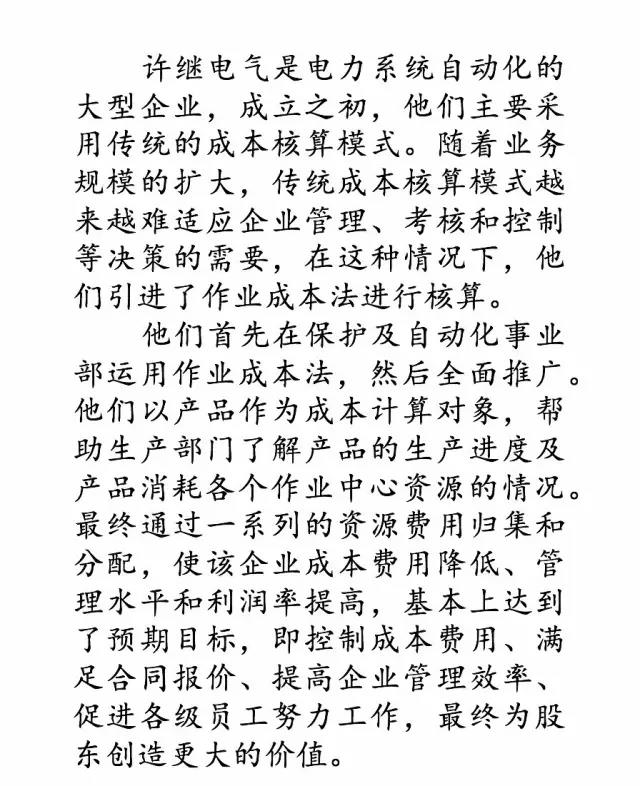 许继电气是电力系统自动化的
大型企业，成立之初，他们主要采
用传统的成本核算模式。随着业务
规模的扩大，传统成本核算模式越
来越难适应企业管理、考核和控制
等决策的需要，在这种情况下，他
们引进了作业成本法进行核算。
他们首先在保护及自动化事业
部运用作业成本法，然后全面推广。
他们以产品作为成本计算对象，帮
助生产部门了解产品的生产进度及
产品消耗各个作业中心资源的情况。
最终通过一系列的资源费用归集和
分配，使该企业成本费用降低、管
理水平和利润率提高，基本上达到
了预期目标，即控制成本费用、满
足合同报价、提高企业管理效率、
促进各级员工努力工作，最终为股
东创造更大的价值。